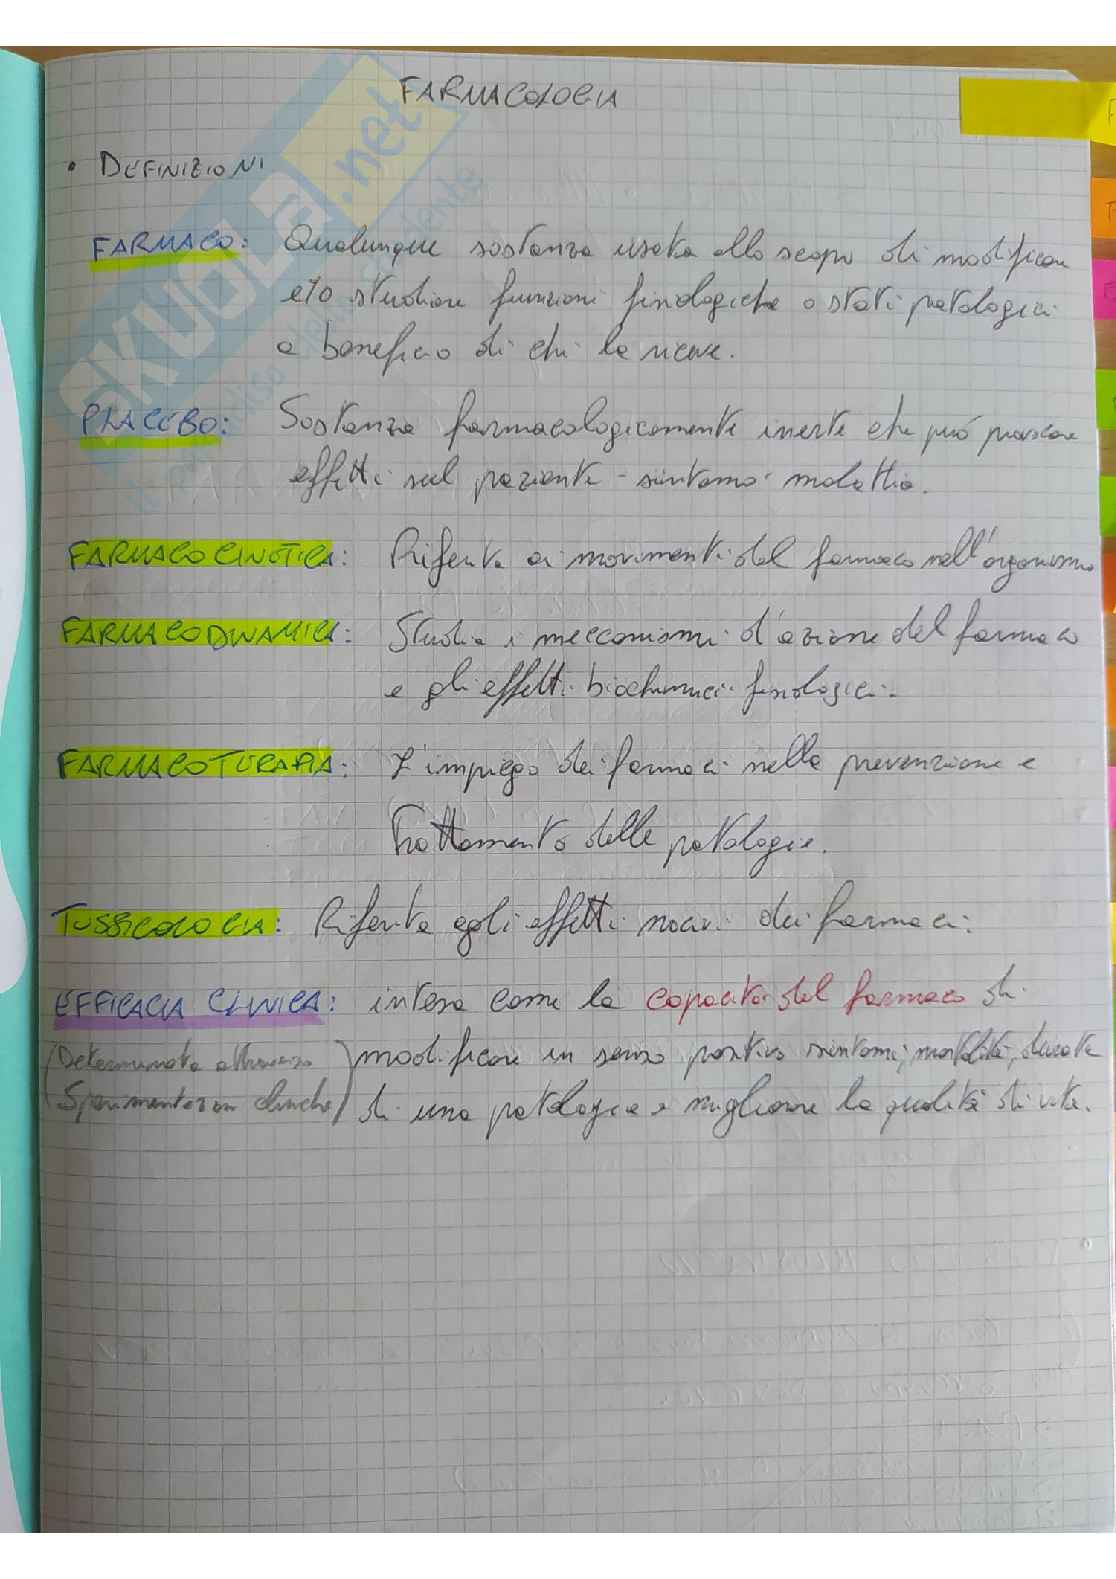 FARMACOLOGIA
• DEFINIZIONI
FARMACO: Qualunque sostanza usata allo scopo di modificare
e/o studiare funzioni fisiologiche o stati patologici
a beneficio di chi la riceve.
PLACEBO: Sostanza farmacologicamente inerte che può
effetti sul paziente - sintomo - malattia.
FARMACOCINETICA: Riferita ai movimenti del farmaco nell'organismo
FARMACODINAMICA: Studia i meccanismi d'azione del farmaco
e gli effetti biochimici fisiologici.
FARMACOTERAPIA: L'impiego dei farmaci nella prevenzione e
trattamento delle patologie.
TOSSICOLOGIA: Riferita agli effetti nocivi dei farmaci.
EFFICACIA CLINICA: intesa come la capacità del farmaco di
(Determinata attraverso modificare in senso positivo sintomi, mortalità, durata
Sperimentazioni cliniche) di una patologia e migliorare la qualità di vita.
SKUOLA.net